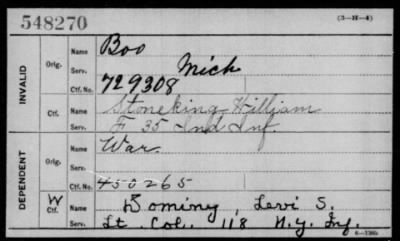 548270
(3-H-4)
INVALID
Orig.
Name
Boo
Serv.
Mich
Ctf. No.
729308
Ctf.
Name
Stoneking William
Serv.
F 35 Ind Inf
DEPENDENT
Orig.
Name
War
Serv.
Ctf. No.
450265
W
Ctf.
Name
Dominy, Levi S.
Serv.
Lt. Col. 118 N.Y. Inf.